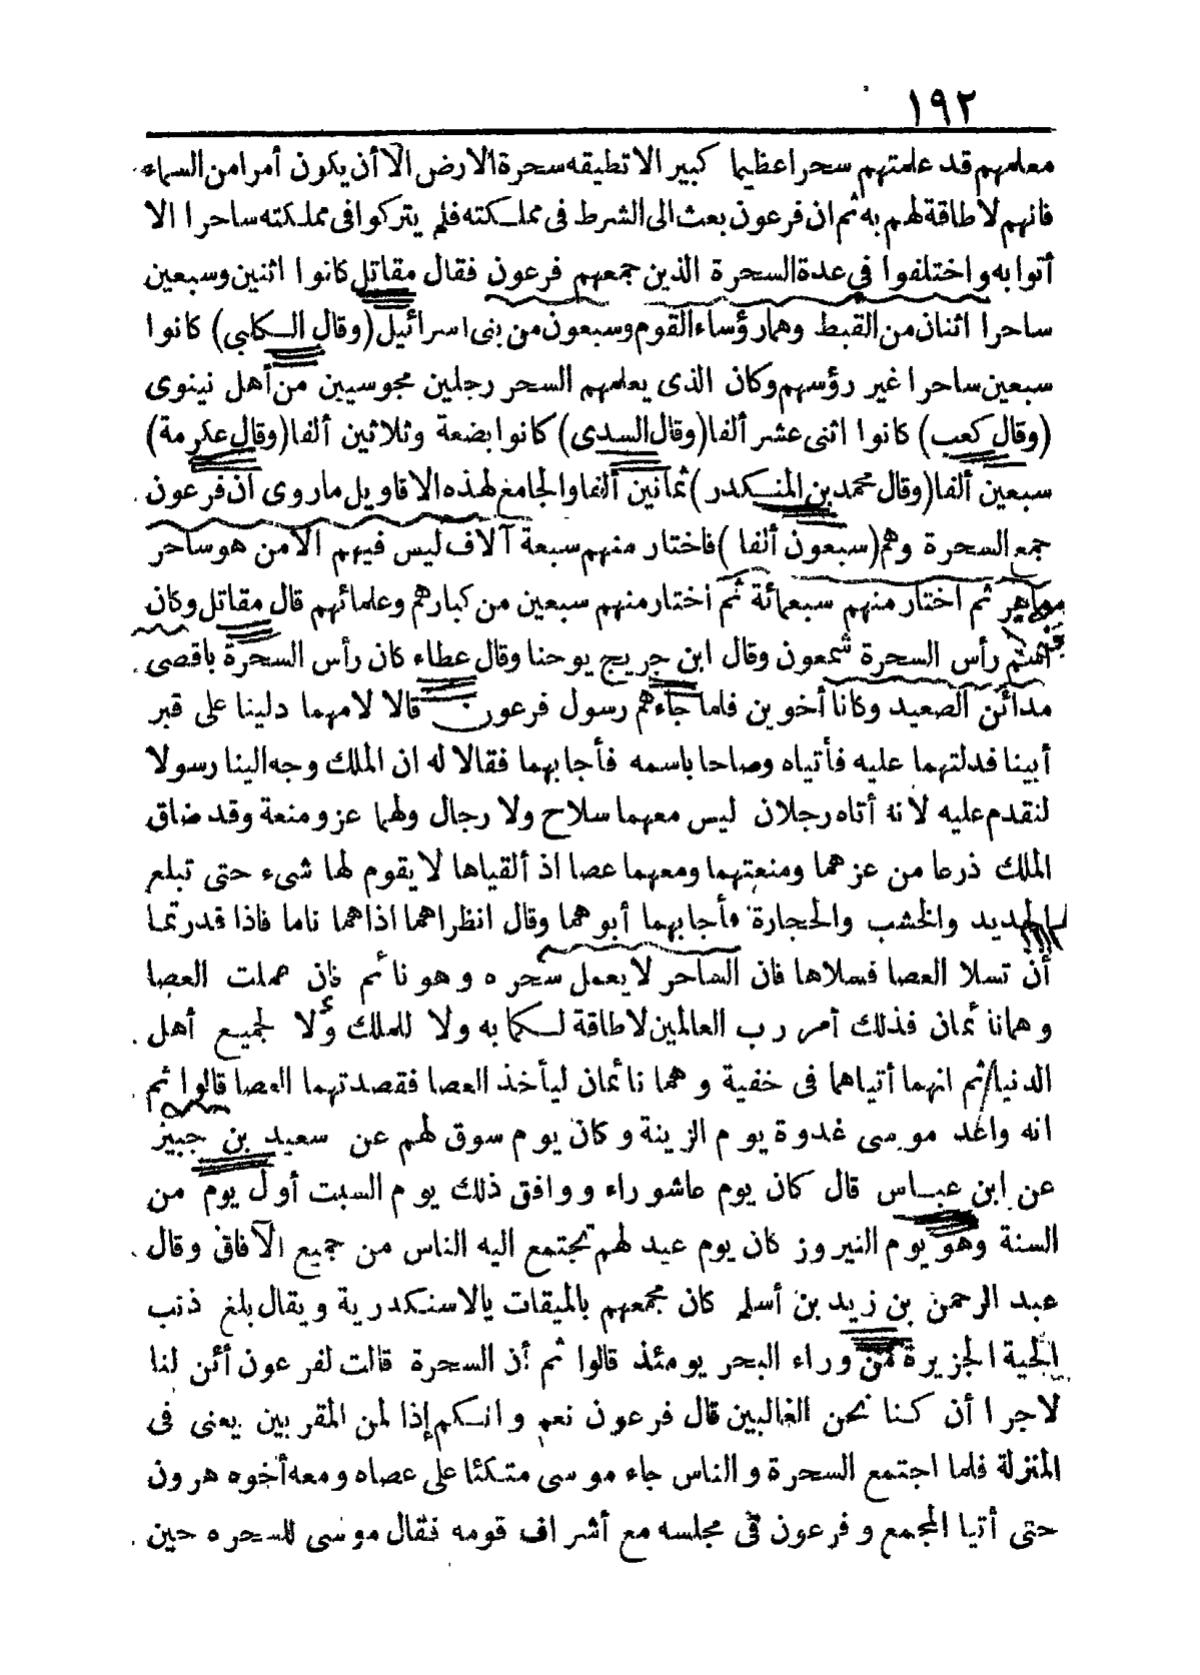 ١٩٢
معلمهم قد علمتهم سحرا عظيما كبيرا لا تطيقه سحرة الارض الا أن يكون أمرا من السماء
فانهم لا طاقة لهم به ثم ان فرعون بعث الى الشرط فى مملكته فلم يتركوا فى مملكته ساحرا الا
أتوا به واختلفوا فى عدة السحرة الذين جمعهم فرعون فقال مقاتل كانوا اثنين وسبعين
ساحرا اثنان من القبط وهما رؤساء القوم وسبعون من بنى اسرائيل (وقال الكلبى) كانوا
سبعين ساحرا غير رؤسهم وكان الذى يعلمهم السحر رجلين مجوسيين من أهل نينوى
(وقال كعب) كانوا اثنى عشر ألفا (وقال السدى) كانوا بضعة وثلاثين ألفا (وقال عكرمة)
سبعين ألفا (وقال محمد بن المنكدر) ثمانين ألفا والجامع لهذه الاقاويل ما روى أن فرعون
جمع السحرة وهم (سبعون ألفا) فاختار منهم سبعة آلاف ليس فيهم الا من هو ساحر
ماهر ثم اختار منهم سبعمائة ثم اختار منهم سبعين من كبارهم وعلمائهم قال مقاتل وكان
رأس السحرة شمعون وقال ابن جريج يوحنا وقال عطاء كان رأس السحرة باقصى
مدائن الصعيد وكانا أخوين فلما جاءهم رسول فرعون قالا لامهما دلينا على قبر
أبينا فدلتهما عليه فأتياه وصاحا باسمه فأجابهما فقالا له ان الملك وجه الينا رسولا
لنقدم عليه لانه أتاه رجلان ليس معهما سلاح ولا رجال ولهما عز ومنعة وقد ضاق
الملك ذرعا من عزهما ومنعتهما ومعهما عصا اذ ألقياها لا يقوم لها شىء حتى تبلع
الحديد والخشب والحجارة فأجابهما أبوهما وقال انظراهما اذا هما ناما فاذا قدرتما
أن تسلا العصا فسلاها فان الساحر لا يعمل سحره وهو نائم فان عملت العصا
وهما نائمان فذلك أمر رب العالمين لا طاقة لكما به ولا للملك ولا لجميع أهل
الدنيا ثم انهما أتياهما فى خفية وهما نائمان ليأخذا العصا فقصدتهما العصا قالوا ثم
انه واعد موسى غدوة يوم الزينة وكان يوم سوق لهم عن سعيد بن جبير
عن ابن عباس قال كان يوم عاشوراء ووافق ذلك يوم السبت أول يوم من
السنة وهو يوم النيروز كان يوم عيد لهم تجتمع اليه الناس من جميع الآفاق وقال
عبد الرحمن بن زيد بن أسلم كان مجمعهم بالميقات بالاسكندرية ويقال بلغ ذنب
الحية الجزيرة من وراء البحر يومئذ قالوا ثم أن السحرة قالت لفرعون أئن لنا
لاجرا أن كنا نحن الغالبين قال فرعون نعم وانكم إذا لمن المقربين يعنى فى
المنزلة فلما اجتمع السحرة والناس جاء موسى متكئا على عصاه ومعه أخوه هرون
حتى أتيا المجمع وفرعون فى مجلسه مع أشراف قومه فقال موسى للسحره حين